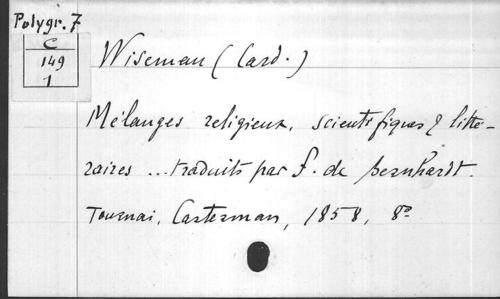 Polygr. 7
C
149
1
Wiseman (Card.)
Mélanges religieux, scientifiques & litté-
raires ... traduits par f. de bernhardt.
Tournai, Casterman, 1858, 8º